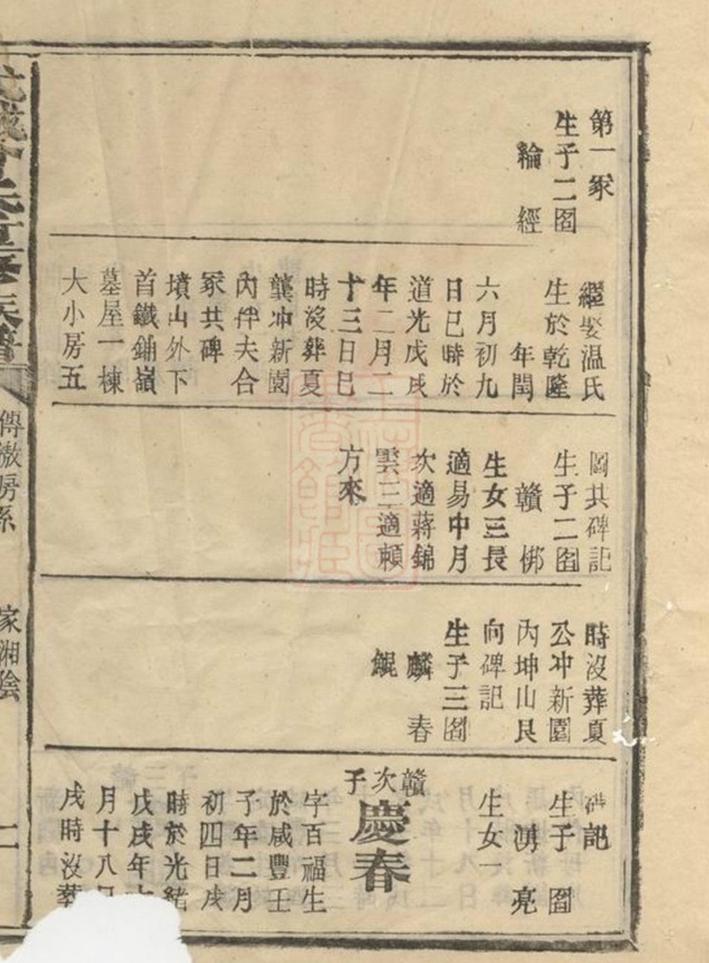 第一冢
生子二圀
綸經
繼娶温氏
生於乾隆
年閏
六月初九
日巳時於
道光戊戌
年二月二
十三日巳
時沒葬夏
龔冲新園
內伴夫合
冢共碑
墳山外下
首鐵鋪嶺
墓屋一棟
大小房五
園共碑記
生子二圀
贛梆
生女三長
適易中月
次適蔣錦
雲三適賴
方來
時沒葬夏
公冲新園
內坤山艮
向碑記
生子三圀
麟春
鯤
碑記
生子圀
湧亮
生女一
贛次子
慶春
字百福生
於咸豐壬
子年二月
初四日戌
時於光緒
戊戌年
月十八日
戌時沒葬
氏重修族譜
傳 房系
家湘陰